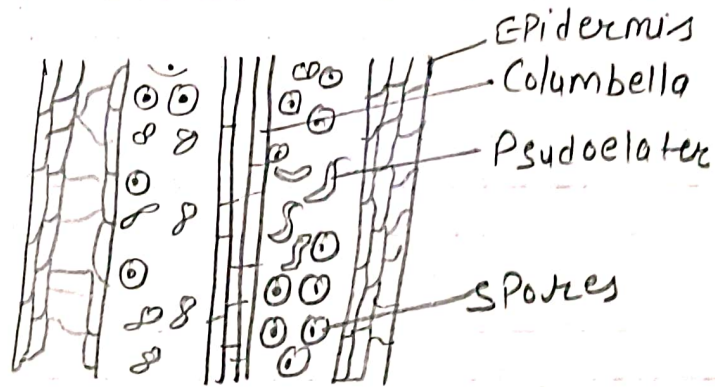 EPidermis
Columbella
Psudoelater
SPores